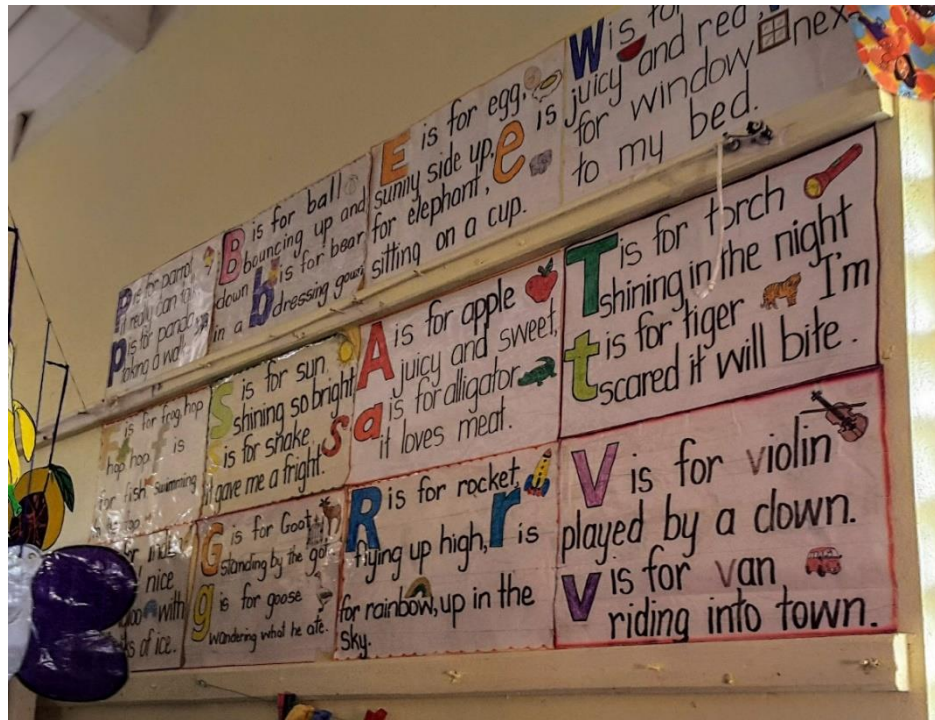 P is for parrot,
it really can talk
p is for panda
taking a walk.
B is for ball
bouncing up and
down b is for bear
in a dressing gown.
E is for egg,
sunny side up, e is
for elephant,
sitting on a cup.
W is for
juicy and red,
for window nex
to my bed.
is for frog, hop
hop, hop. f is
for fish swimming
S is for sun
shining so bright
s is for snake
it gave me a fright.
A is for apple
juicy and sweet,
a is for alligator
it loves meat.
T is for torch
shining in the night
t is for tiger I'm
scared it will bite.
nice
with
of ice.
G is for Goat
standing by the gate
g is for goose
wandering what he ate.
R is for rocket,
flying up high, r is
for rainbow, up in the
sky.
V is for violin
played by a clown.
v is for van
riding into town.